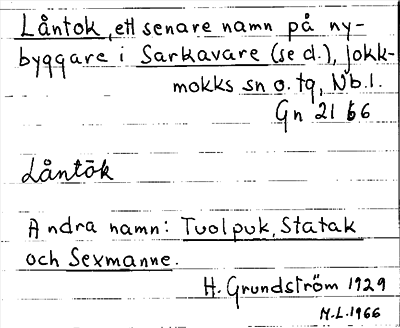 Låntok, ett senare namn på ny-
byggare i Sarkavare (se d.), Jokk-
mokks sn o. tg, Nb.l.
Gn 21 b6
Låntōk
Andra namn: Tuolpuk, Statak
och Sexmanne.
H. Grundström 1929
M.L. 1966